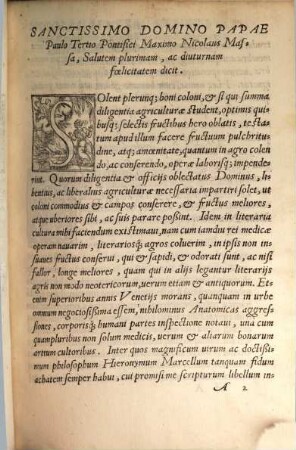 SANCTISSIMO DOMINO PAPAE
Paulo Tertio Pontifici Maximo Nicolaus Mas-
sa, Salutem plurimam, ac diuturnam
fœlicitatem dicit.
SOlent plerunq; boni coloni, & si qui summa
diligentia agriculturæ student, optimis quibus-
q; selectis fructibus hero oblatis, testa-
tum apud illum facere fructuum pulchritudi-
ne, atq; amœnitate, quantum in agro colen-
do, ac conserendo, operæ laborisq; impende-
rint. Quorum diligentia & officijs oblectatus Dominus, li-
bentius, ac liberalius agriculturæ necessaria impartiri solet, ut
coloni commodius & campos conserere, & fructus meliores,
atque uberiores sibi, ac suis parare possint. Idem in literaria
cultura mihi faciendum existimaui, nam cum iamdiu rei medicæ
operam nauarim, literariosq; agros coluerim, in ipsis non in-
suaues fructus conserui, qui & sapidi, & odorati sunt, ac nisi
fallor, longe meliores, quam qui in alijs leguntur literarijs
agris non modo neotericorum, uerum etiam & antiquorum. Et-
enim superioribus annis Venetijs morans, quanquam in urbe
omnium negociosissima essem, nihilominus Anatomicas aggres-
siones, corporisq; humani partes inspectione notaui, una cum
quampluribus non solum medicis, uerum & aliarum bonarum
artium cultoribus. Inter quos magnificum uirum ac doctissi-
mum philosophum Hieronymum Marcellum tanquam fidum
achatem semper habui, cui promisi me scripturum libellum in-
A 2